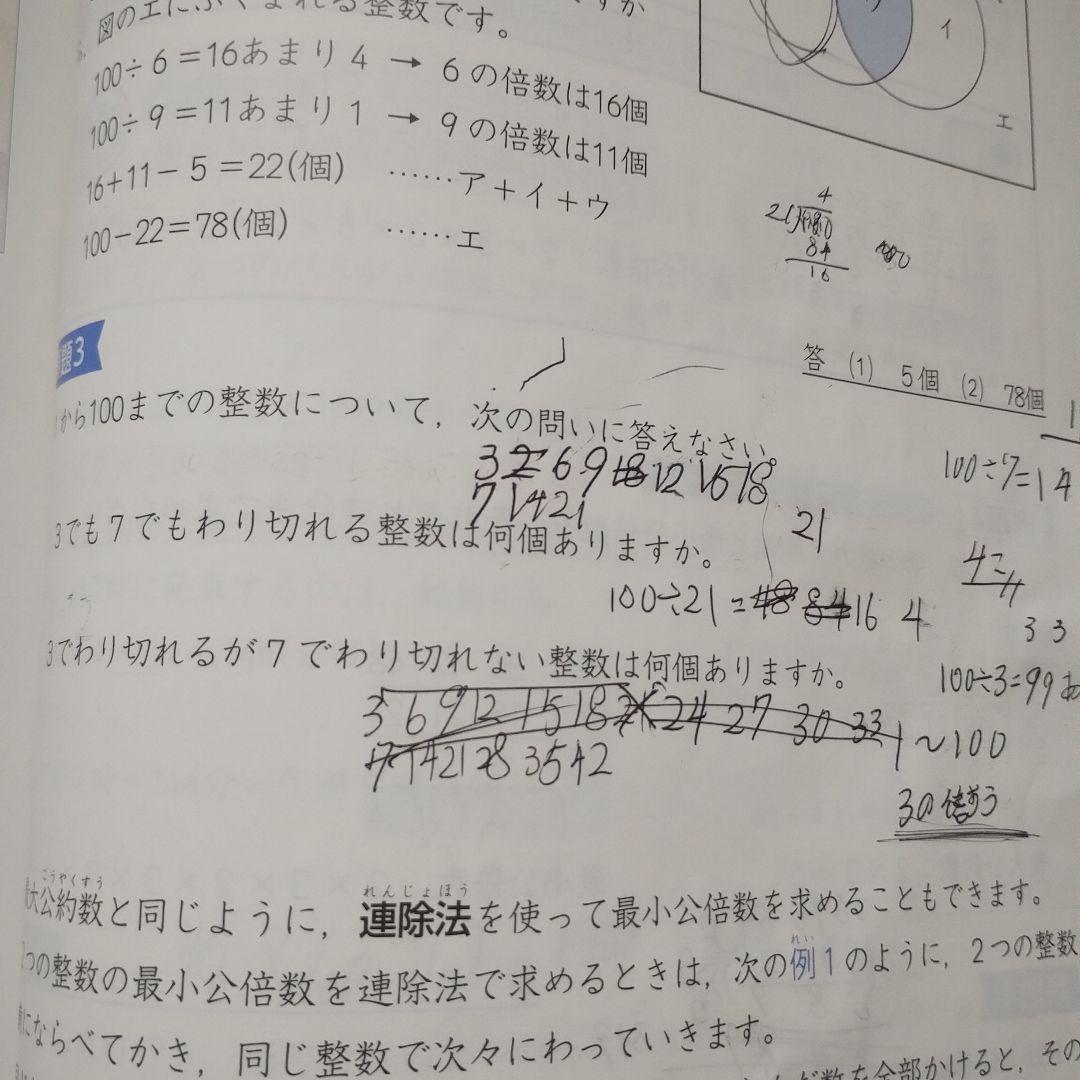 図のエにふくまれる整数です。
100÷6＝16あまり4 → 6の倍数は16個
100÷9＝11あまり1 → 9の倍数は11個
16+11－5＝22(個) ……ア＋イ＋ウ
100－22＝78(個) ……エ
イ
エ
4
84
16
答 (1) 5個 (2) 78個
題3
から100までの整数について，次の問いに答えなさい。
3 6 9 12 15 18
7 14 21
21
100÷7=14
3でも7でもわり切れる整数は何個ありますか。
100÷21=
16 4
33
3でわり切れるが7でわり切れない整数は何個ありますか。
100÷3=99あ
3 6 9 12 15 18 24 27 30 33
7 14 21 28 35 42
1～100
3の倍すう
大公約数と同じように，連除法を使って最小公倍数を求めることもできます。
こうやくすう
れんじょほう
つの整数の最小公倍数を連除法で求めるときは，次の例1のように，2つの整数
れい
にならべてかき，同じ整数で次々にわっていきます。
数を全部かけると，その